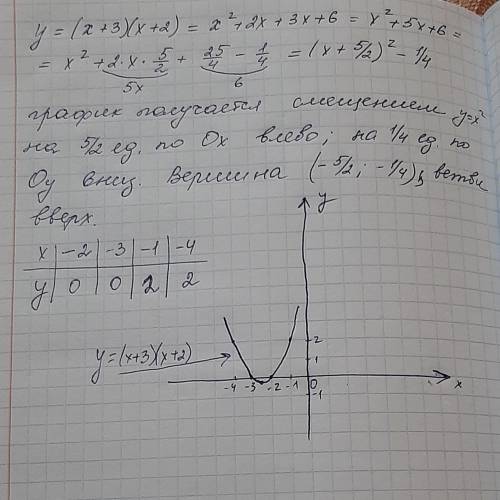 y = (x+3)(x+2) = x² + 2x + 3x + 6 = x² + 5x + 6 =
= x² + 2·x·5/2 + 25/4 − 1/4 = (x + 5/2)² − 1/4
5x 6
график получается смещением y=x²
на 5/2 ед. по Ox влево; на 1/4 ед. по
Oy вниз. Вершина (−5/2; −1/4), ветви
вверх.
x | −2 | −3 | −1 | −4
y | 0 | 0 | 2 | 2
y
y=(x+3)(x+2)
2
1
-4 -3 -2 -1 0 x
-1